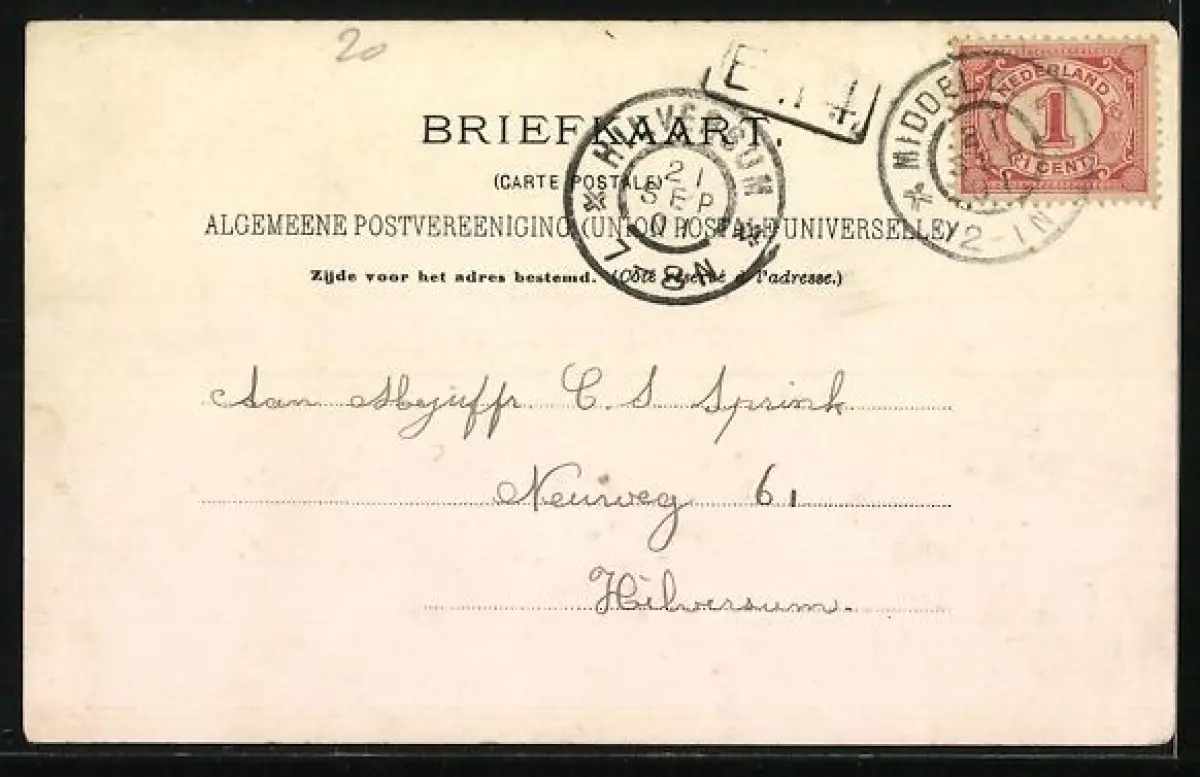 20
BRIEFKAART.
(CARTE POSTALE)
ALGEMEENE POSTVEREENIGING (UNION POSTALE UNIVERSELLE)
Zijde voor het adres bestemd. (Côté réservé à l'adresse.)
HILVERSUM
21
SEP
01
NEDERLAND
1
(1 CENT)
MIDDEL
12-1N
Aan Mejuffr. C. S. Sprink
Neuweg 61
Hilversum.